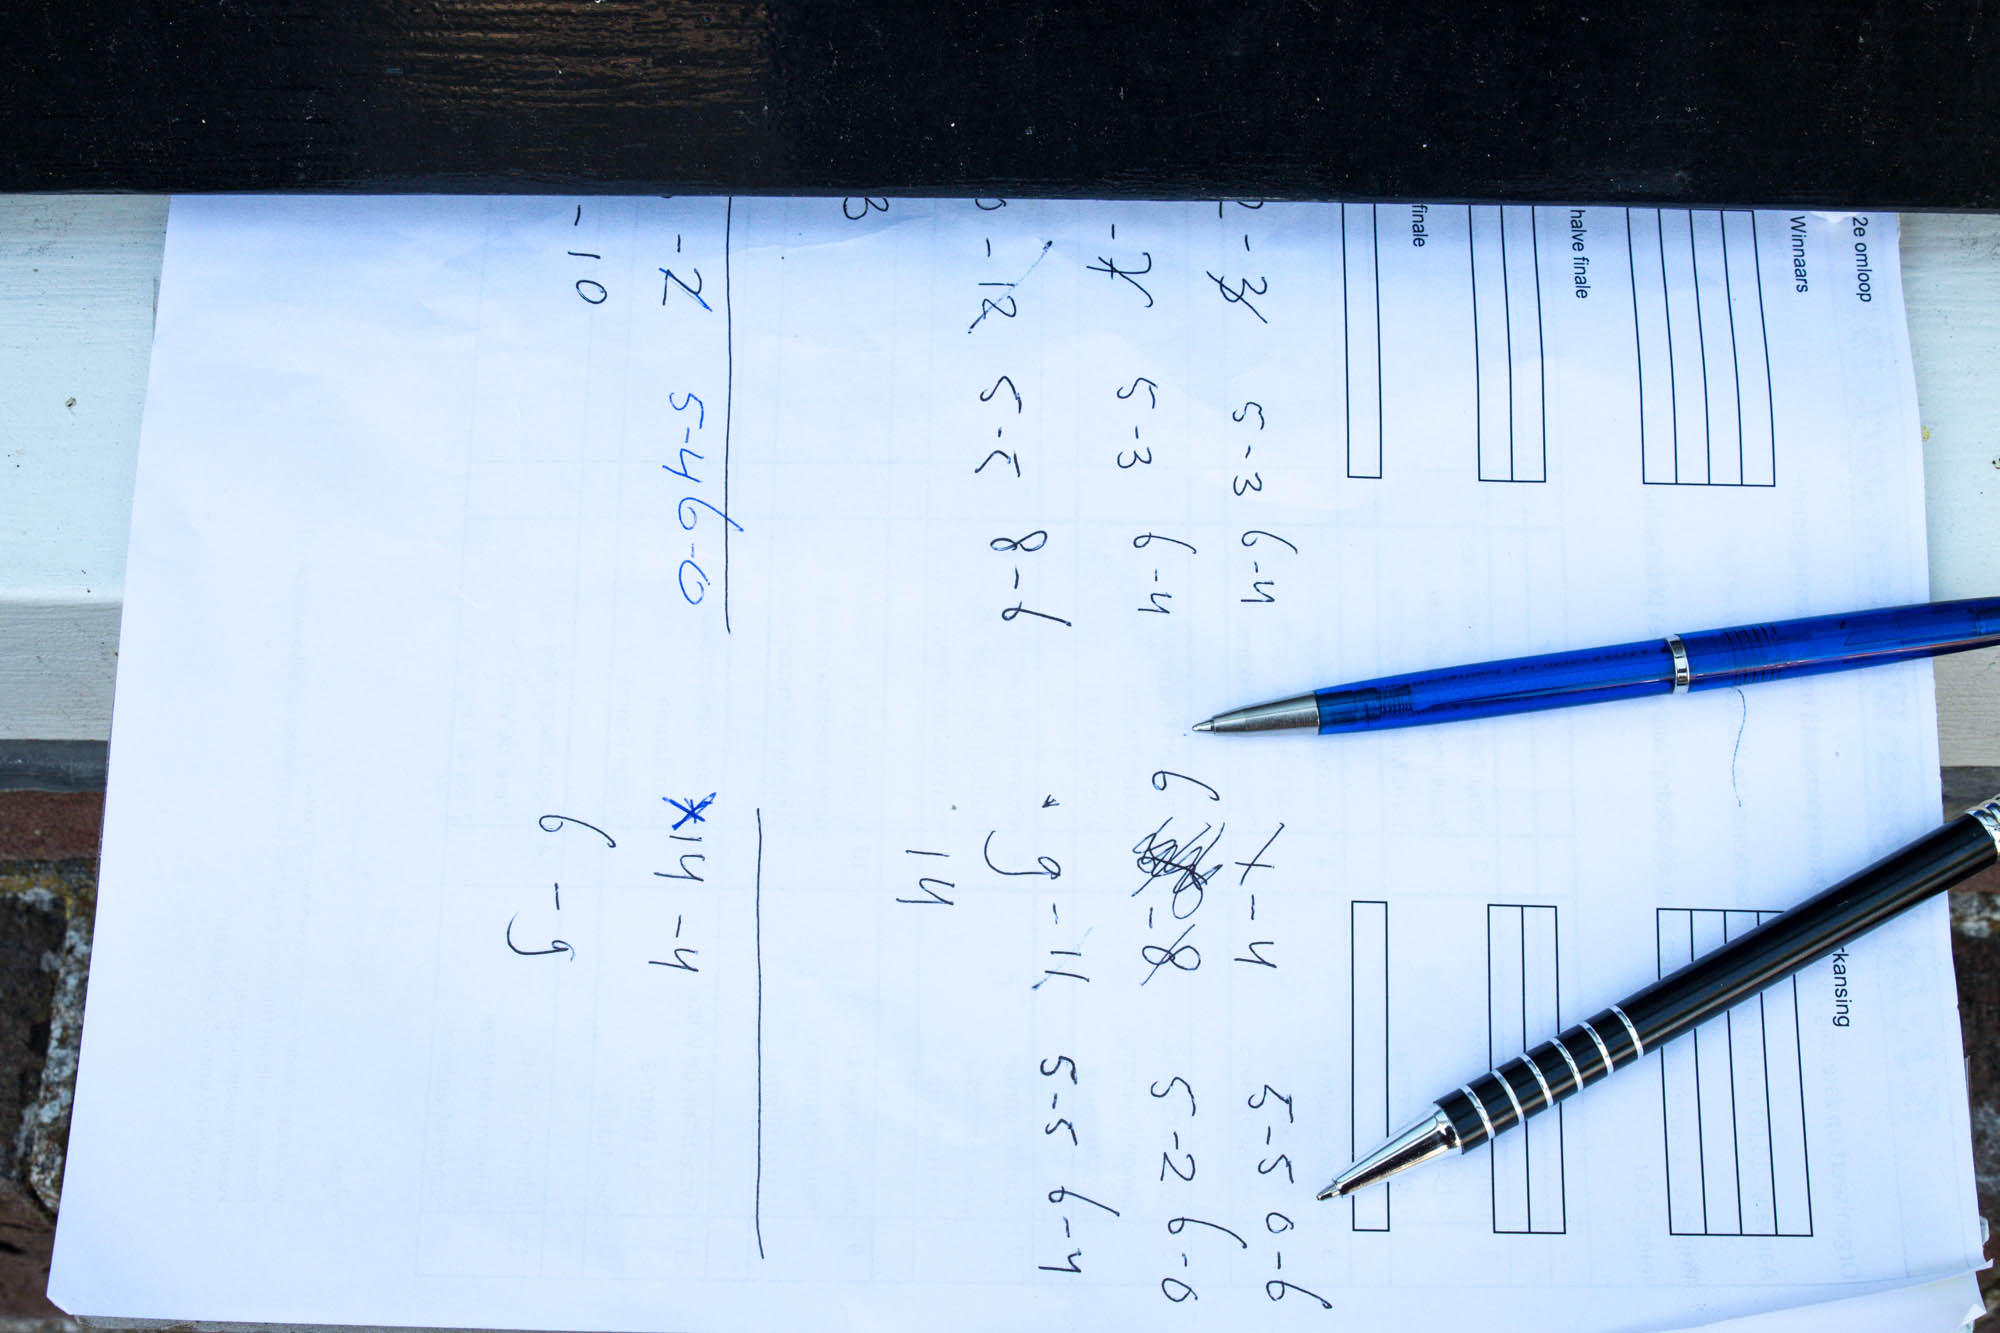 2e omloop
Winnaars -kansing
halve finale
finale
- 3 5-3 6-4 7-4 5-5 0-6
- 7 5-3 6-4 6 - 8 5-2 6-0
- 12 5-5 8-6 9-11 5-5 6-4
3 14
- 2 5-4 6-0 *14-4
- 10 6-9